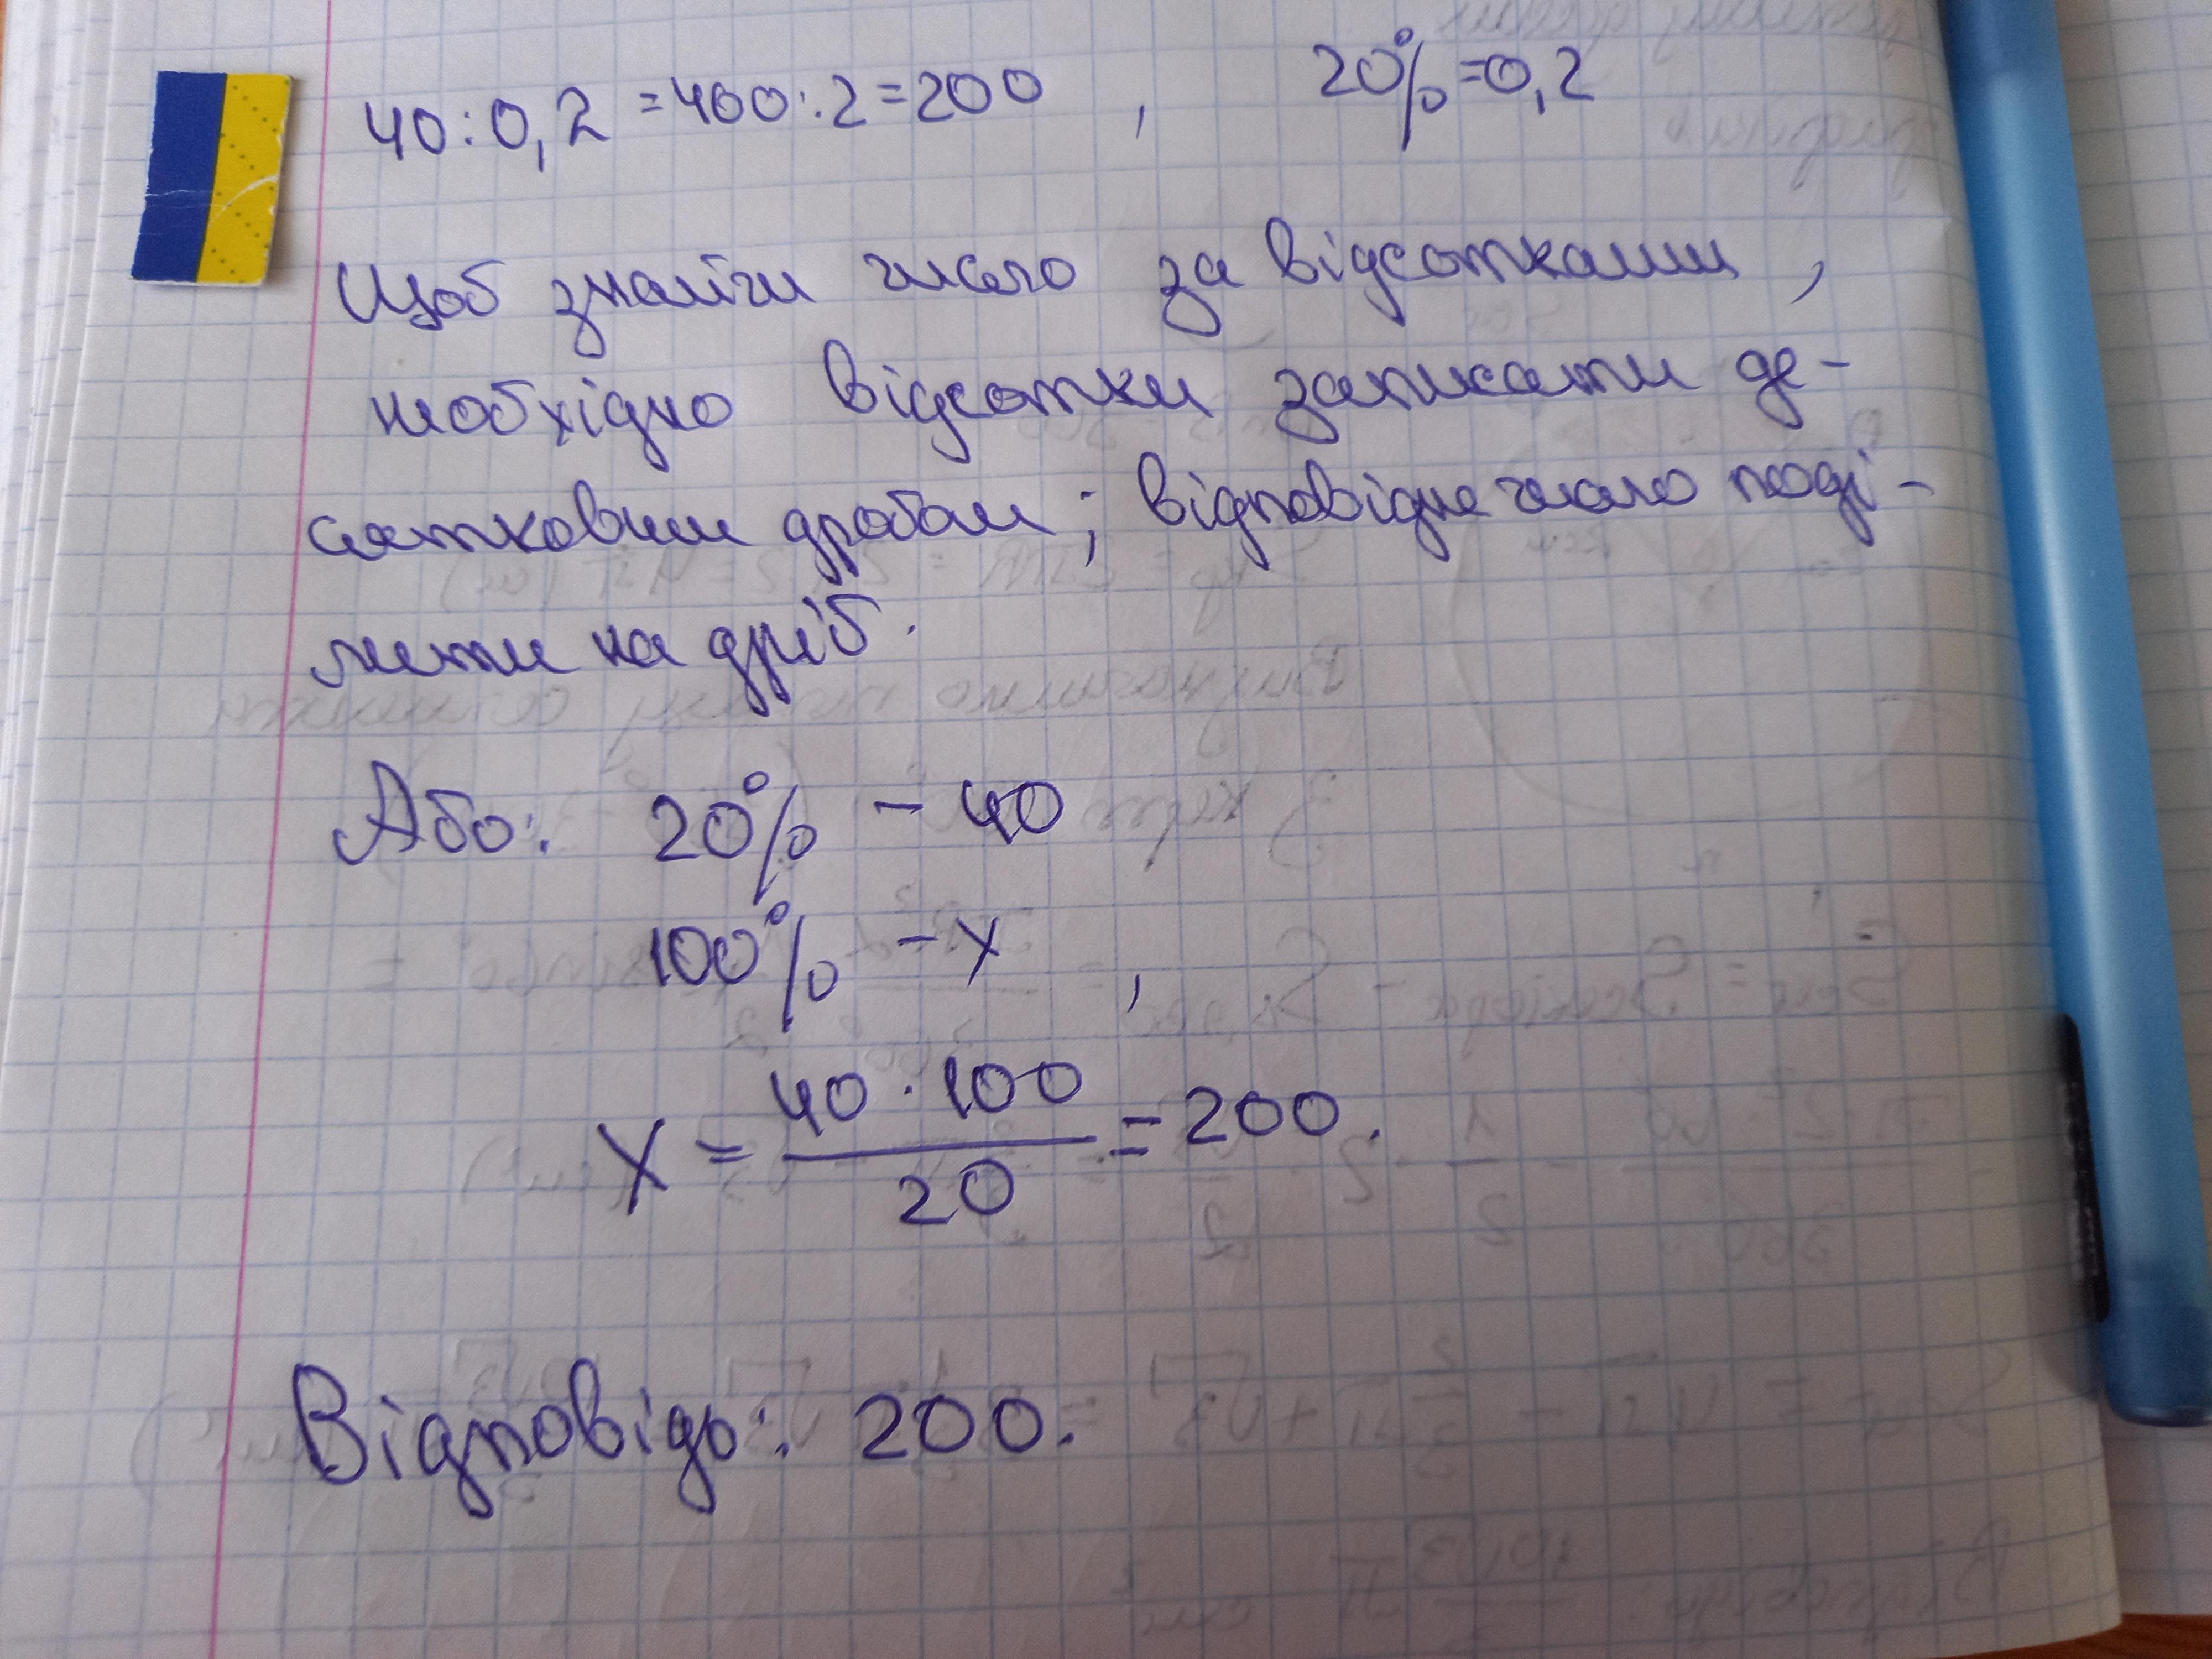 40:0,2=400:2=200 , 20%=0,2
Щоб знайти число за відсотками,
необхідно відсотки записати де-
сятковим дробом; відповідне число поді-
лити на дріб.
Або: 20% - 40
100% - x ,
x = \frac{40 \cdot 100}{20} = 200.
Відповідь: 200.